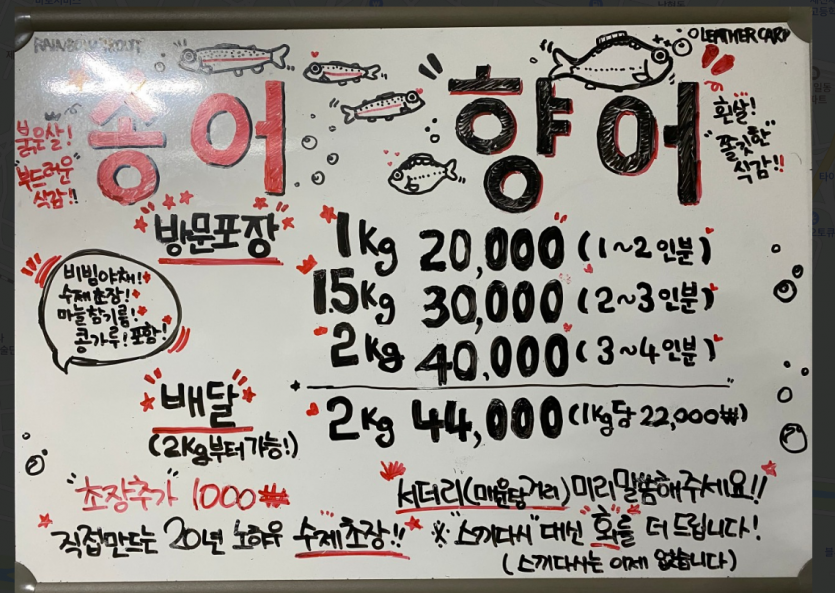 RAINBOW TROUT
LEATHER CARP
송어
향어
붉은살!
"부드러운"
식감!!
흰살!
"쫄깃한"
식감!!
방문포장
1kg 20,000 (1~2인분)
1.5kg 30,000 (2~3인분)
2kg 40,000 (3~4인분)
비빔야채!
수제초장!
마늘참기름!
콩가루! 포함!
배달
(2kg부터 가능!)
2kg 44,000 (1kg당 22,000₩)
"초장추가" 1000₩
서더리(매운탕거리) 미리말씀해주세요!!
직접만드는 20년 노하우 수제초장!!
※"스끼다시" 대신 "회를" 더 드립니다!
(스끼다시는 이제 없습니다)